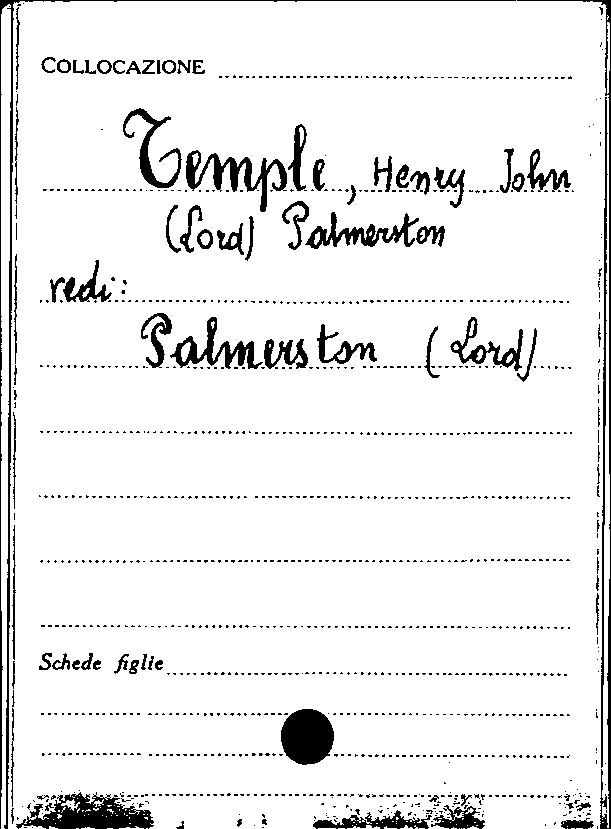 COLLOCAZIONE
Temple, Henry John
(Lord) Palmerston
vedi:
Palmerston (Lord)
Schede figlie